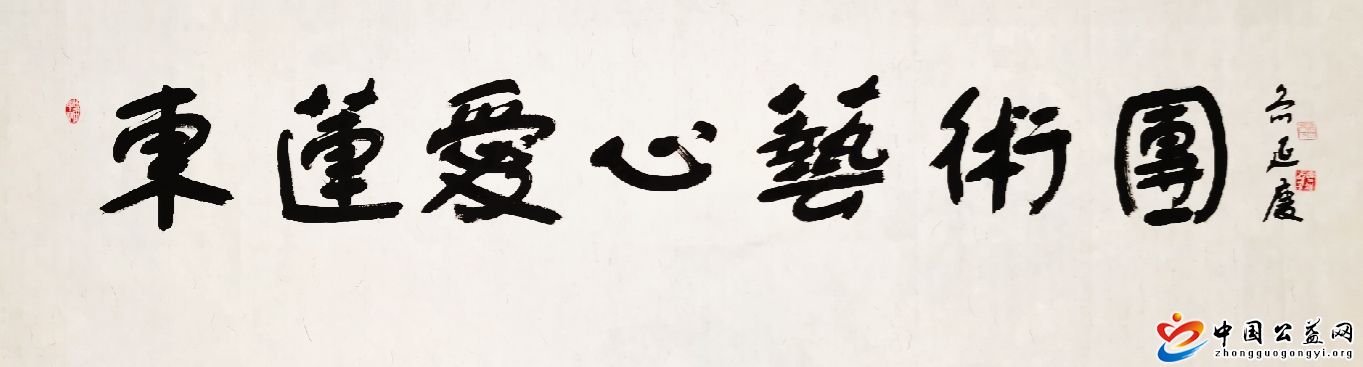 東蓮愛心藝術團
延慶
中国公益网
zhongguogongyi.org